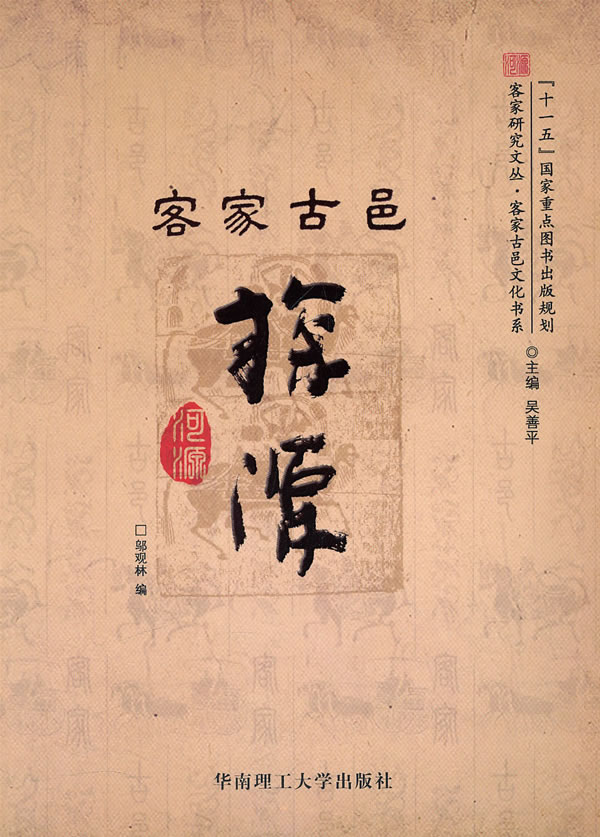 河源
『十一五』国家重点图书出版规划
客家研究文丛·客家古邑文化书系
◎主编 吴善平
客家古邑
探源
河源
□邬观林 编
华南理工大学出版社